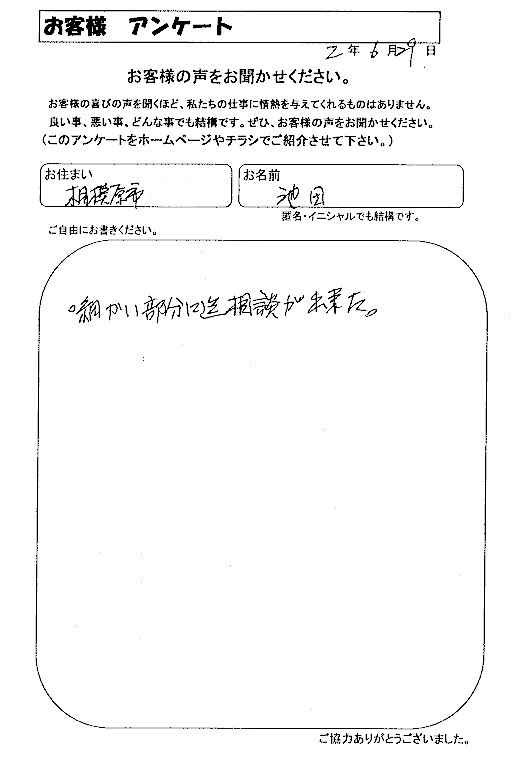 お客様 アンケート
2年6月29日
お客様の声をお聞かせください。
お客様の喜びの声を聞くほど、私たちの仕事に情熱を与えてくれるものはありません。
良い事、悪い事、どんな事でも結構です。ぜひ、お客様の声をお聞かせください。
(このアンケートをホームページやチラシでご紹介させて下さい。)
お住まい
相模原市
お名前
池田
匿名・イニシャルでも結構です。
ご自由にお書きください。
。細かい部分に迄相談が出来た。
ご協力ありがとうございました。